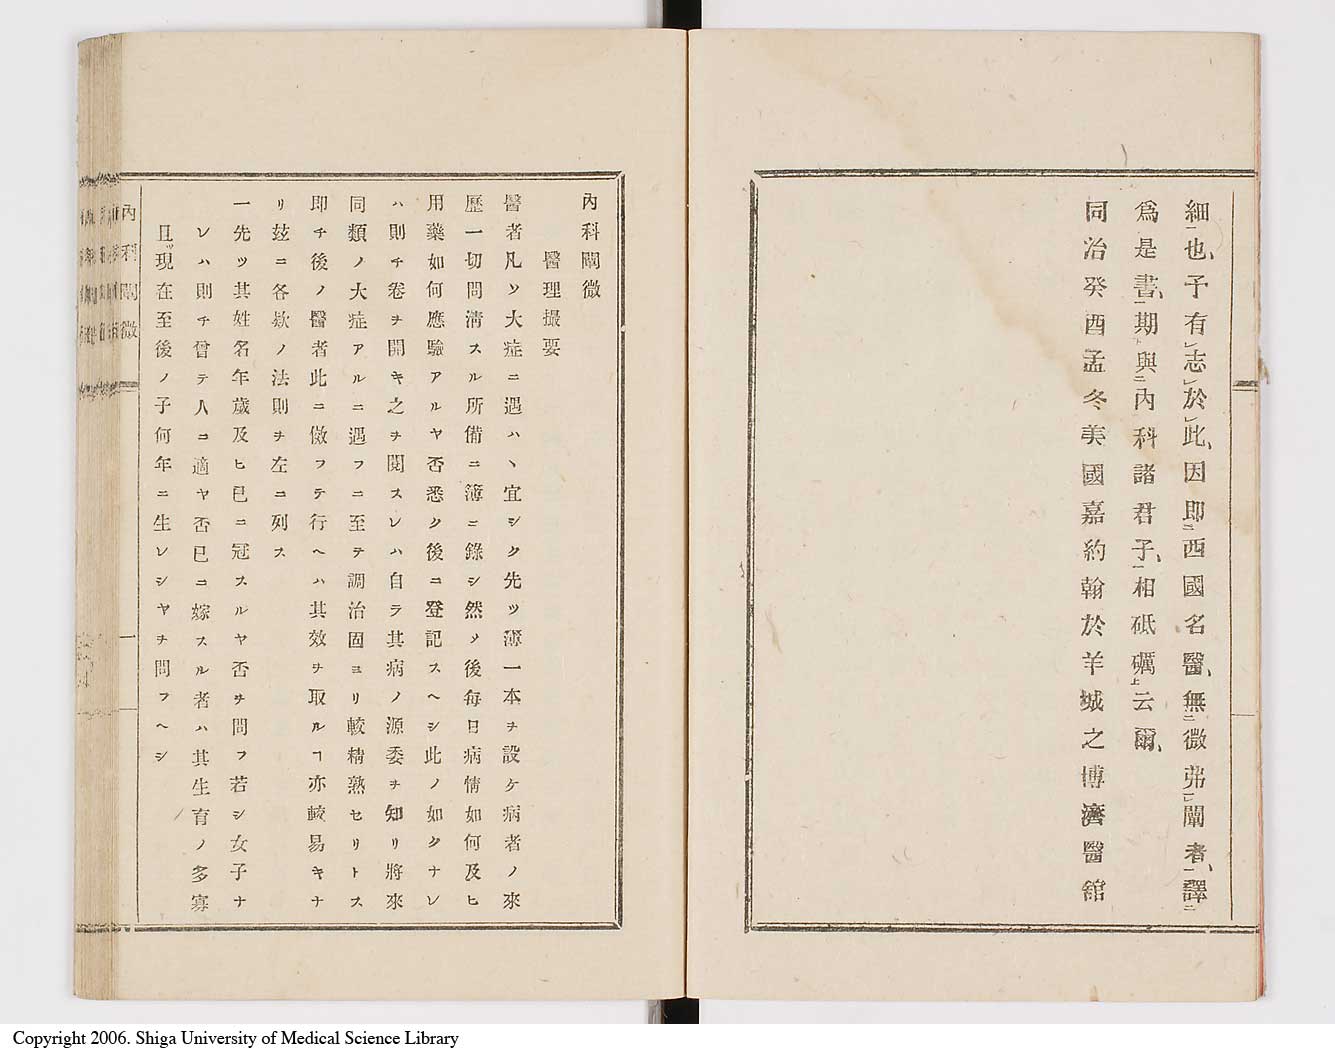 細也、予有志於此、因即西國名醫、無微弗闡者、譯
爲是書、期與內科諸君子、相砥礪云爾、
同治癸酉孟冬美國嘉約翰於羊城之博濟醫舘
內科闡微
醫理撮要
醫者凡ソ大症ニ遇ハヽ宜シク先ツ薄一本ヲ設ケ病者ノ來
歷一切問淸スル所備ニ簿ニ錄シ然メ後每日病情如何及ヒ
用藥如何應驗アルヤ否悉ク後ニ登記スヘシ此ノ如クナレ
ハ則チ卷ヲ開キ之ヲ閱スレハ自ラ其病ノ源委ヲ知リ將來
同類ノ大症アルニ遇フニ至テ調治固ヨリ較精熟セリトス
即チ後ノ醫者此ニ倣フテ行ヘハ其效ヲ取ルヿ亦較易キナ
リ玆ニ各欵ノ法則ヲ左ニ列ス
一先ツ其姓名年歲及ヒ已ニ冠スルヤ否ヲ問フ若シ女子ナ
レハ則チ曾テ人ニ適ヤ否已ニ嫁スル者ハ其生育ノ多寡
且ッ現在至後ノ子何年ニ生レシヤヲ問フヘシ
內科闡微
一
Copyright 2006. Shiga University of Medical Science Library